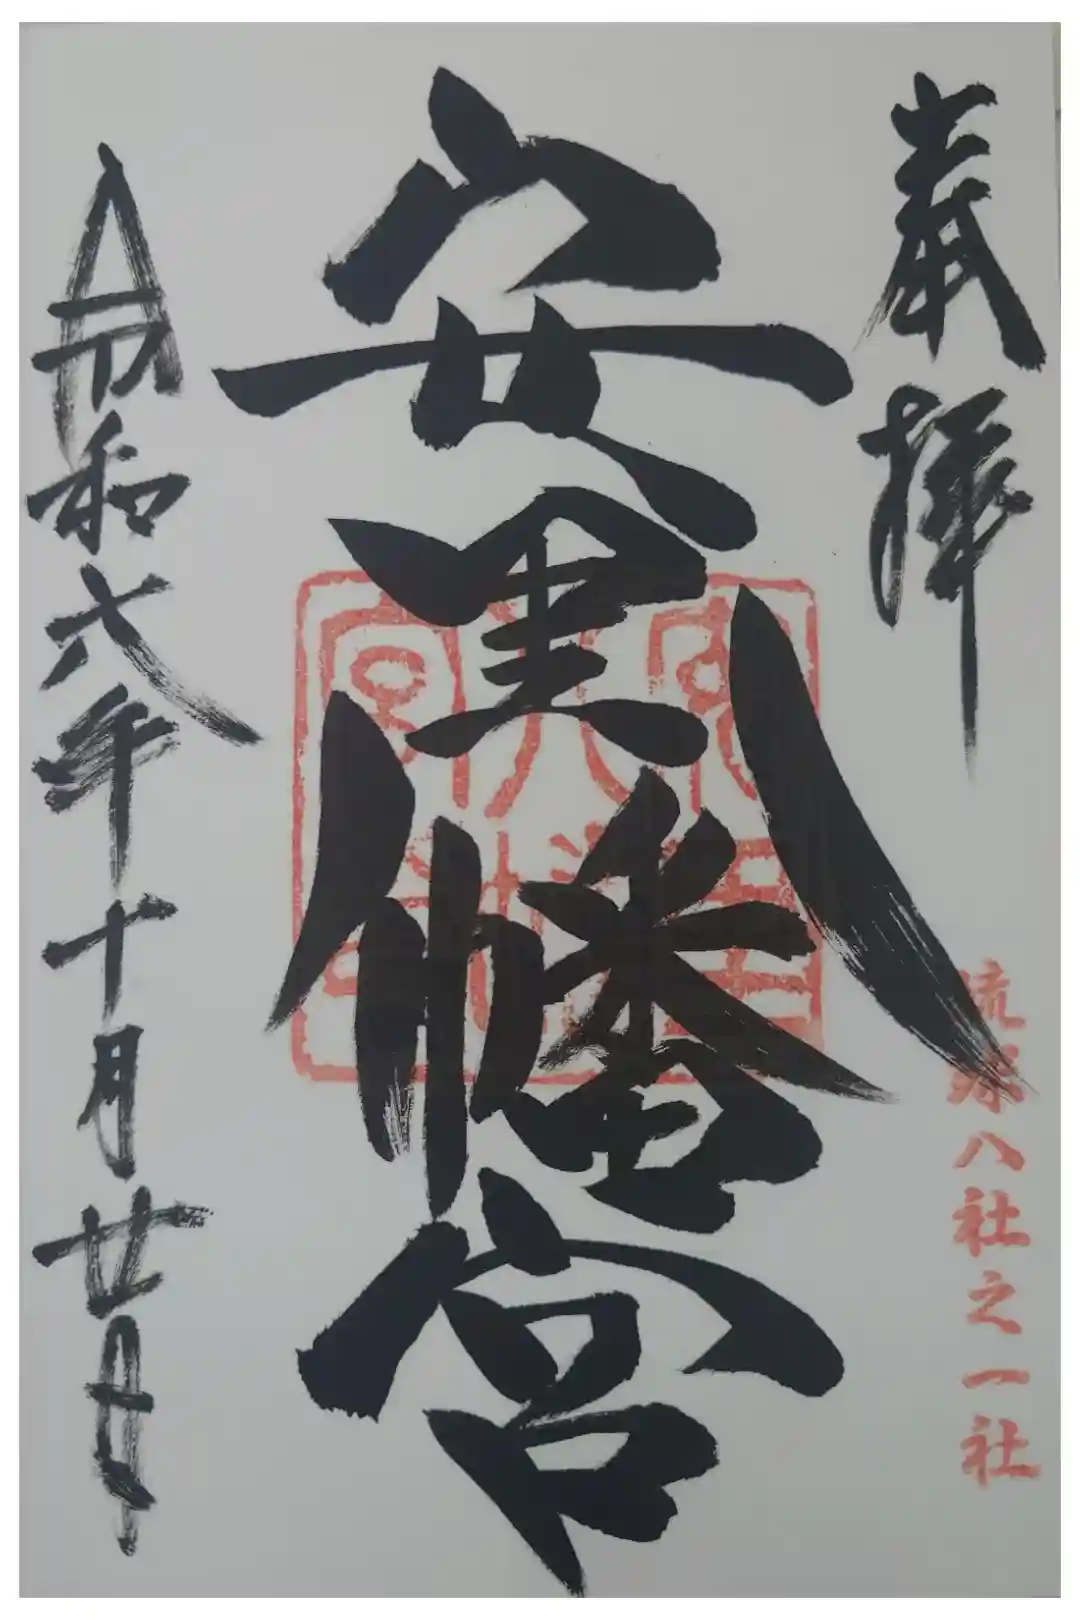 奉拝
琉球八社之一社
安里八幡宮
令和六年十月廿日